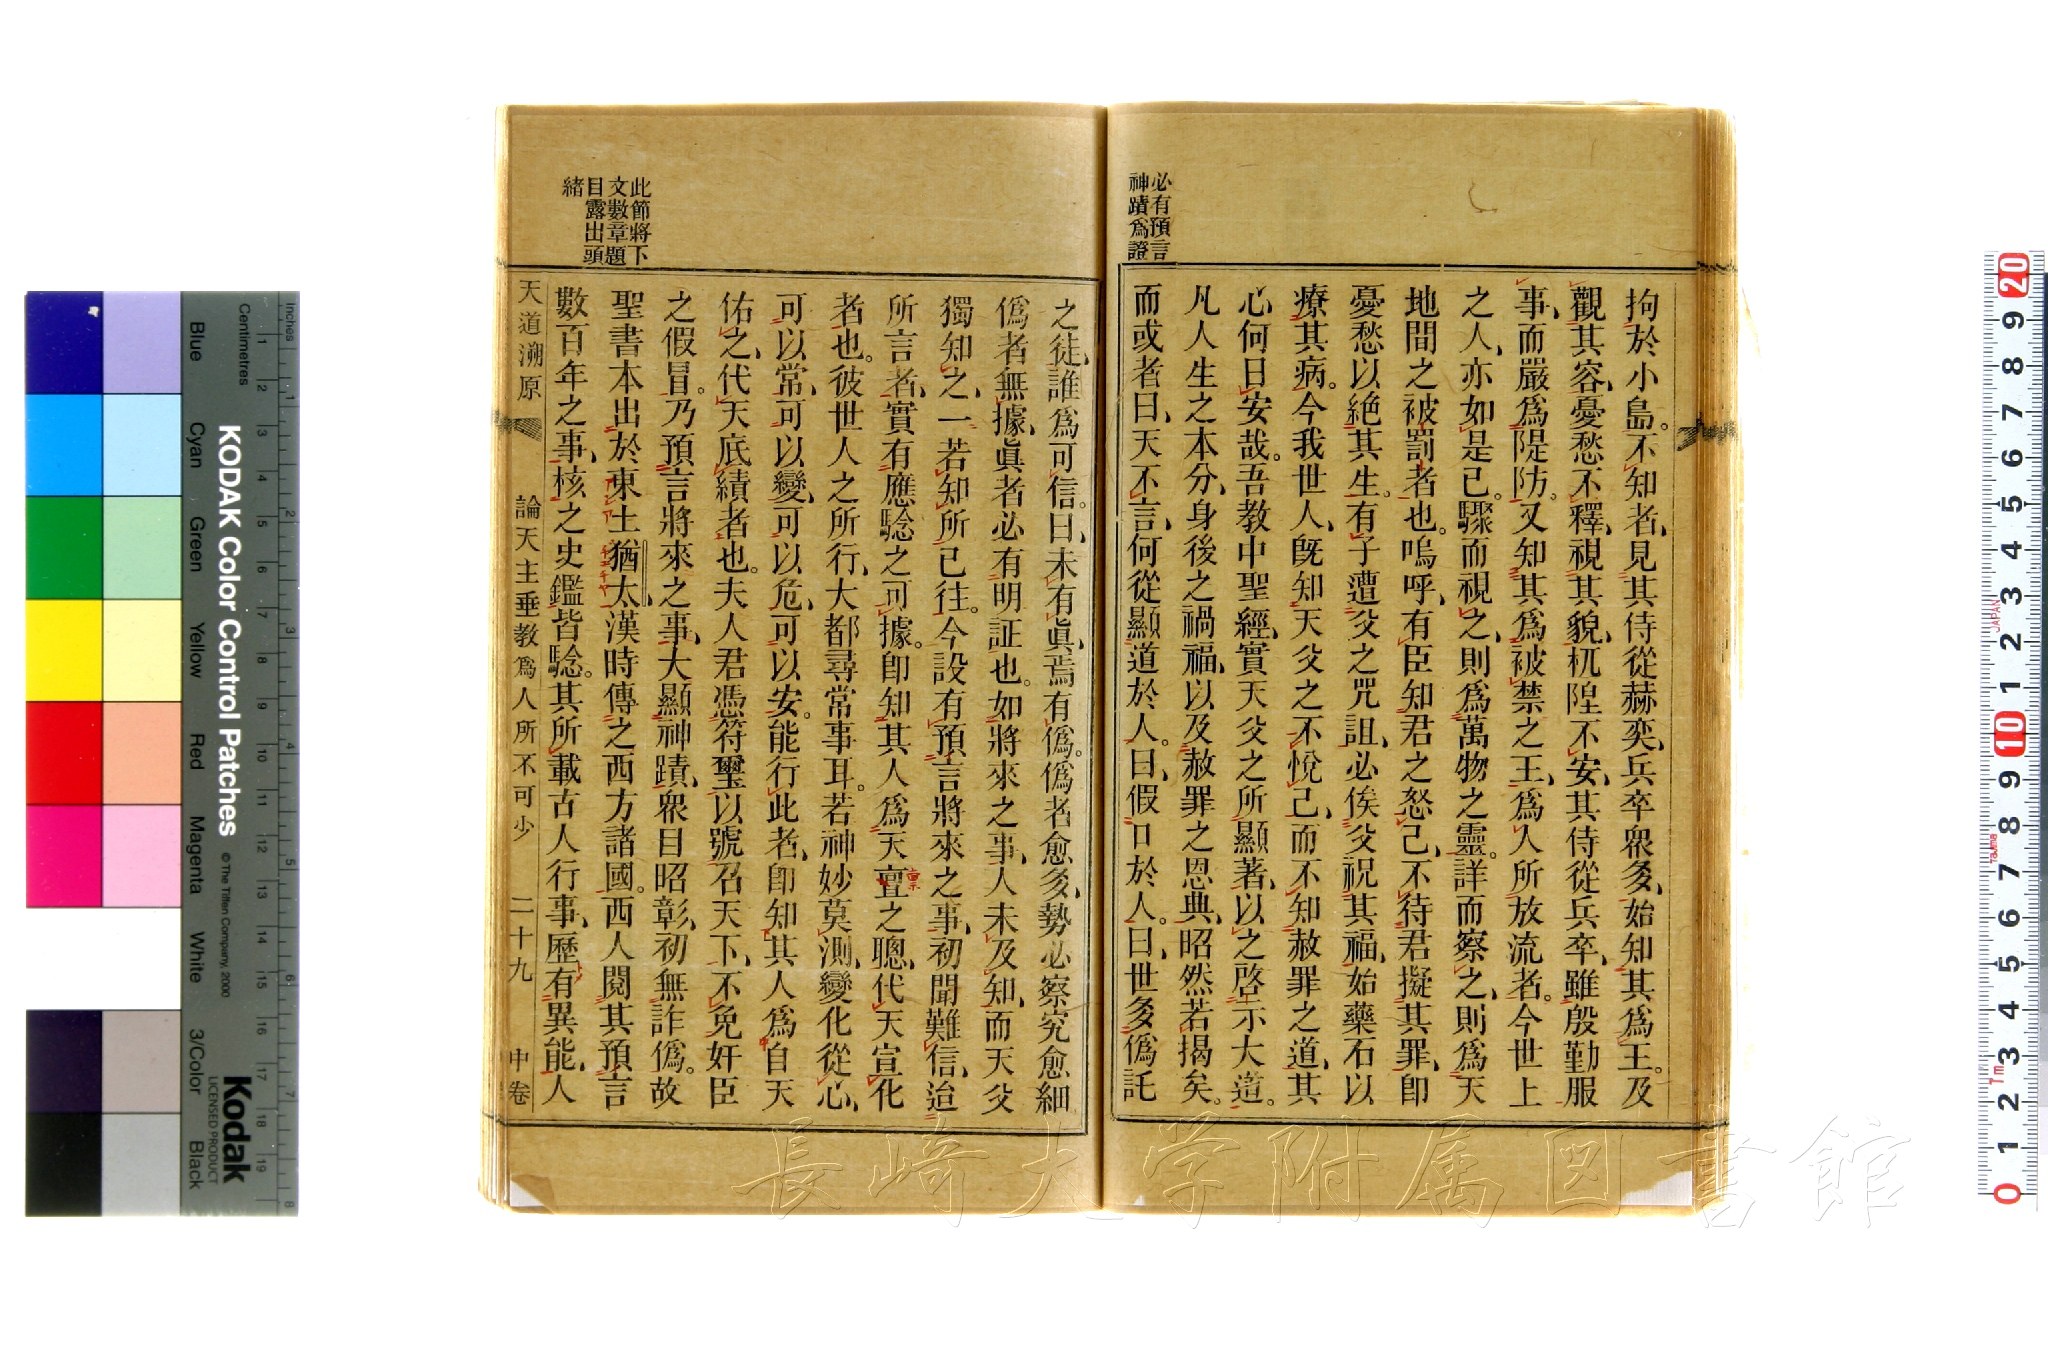 必有預言
神蹟爲證
拘於小島。不知者、見其侍從赫奕、兵卒衆多、始知其爲王。及
觀其容、憂愁不釋、視其貌、杌隉不安、其侍從兵卒、雖殷勤服
事、而嚴爲隄防。又知其爲被禁之王、爲人所放流者。今世上
之人、亦如是已。驟而視之、則爲萬物之靈。詳而察之、則爲天
地間之被罰者也。嗚呼、有臣知君之怒己、不待君擬其罪、卽
憂愁以絕其生。有子遭父之咒詛、必俟父祝其福、始藥石以
療其病。今我世人、旣知天父之不悅己、而不知赦罪之道、其
心何日安哉。吾敎中聖經、實天父之所顯著、以之啓示大道。
凡人生之本分、身後之禍福、以及赦罪之恩典、昭然若揭矣。
而或者曰、天不言、何從顯道於人。曰、假口於人。曰、世多僞託
此節將下
文數章題
目露出頭
緒
之徒、誰爲可信。曰、未有眞、焉有僞。僞者愈多、勢必察究愈細
僞者無據、眞者必有明証也。如將來之事、人未及知、而天父
獨知之、一若知所已往。今設有預言將來之事、初聞難信、迨
所言者、實有應驗之可據。卽知其人爲天亶之聰、代天宣化
者也。彼世人之所行、大都尋常事耳。若神妙莫測、變化從心、
可以常、可以變、可以危、可以安。能行此者、卽知其人爲自天
佑之、代天底績者也。夫人君憑符璽以號召天下、不免奸臣
之假冒。乃預言將來之事、大顯神蹟、衆目昭彰、初無詐僞。故
聖書本出於東土猶太漢時傳之西方諸國。西人閱其預言
數百年之事、核之史鑑皆驗。其所載古人行事、歷有異能、人
天道溯原
論天主垂教爲人所不可少 二十九 中卷
長崎大学附属図書館
KODAK Color Control Patches
© The Tiffen Company, 2000
Kodak
LICENSED PRODUCT
Inches
Centimetres
Blue
Cyan
Green
Yellow
Red
Magenta
White
3/Color
Black
JAPAN